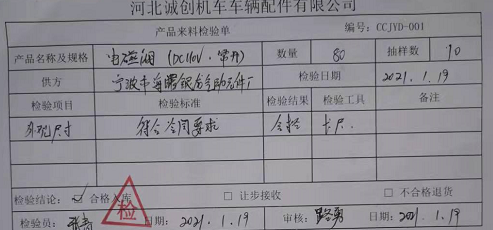 河北诚创机车车辆配件有限公司
产品来料检验单 编号：CCJYD-001
产品名称及规格 电磁阀（DC110V·常开） 数量 80 抽样数 10
供方 宁波市海曙 气动元件厂 检验日期 2021.1.19
检验项目 检验标准 检验结果 检验工具 备注
外观尺寸 符合 要求 合格 卡尺
检验结论：√合格入库 □让步接收 □不合格退货
检验员： 检 日期：2021.1.19 审核：路勇 日期：2021.1.19